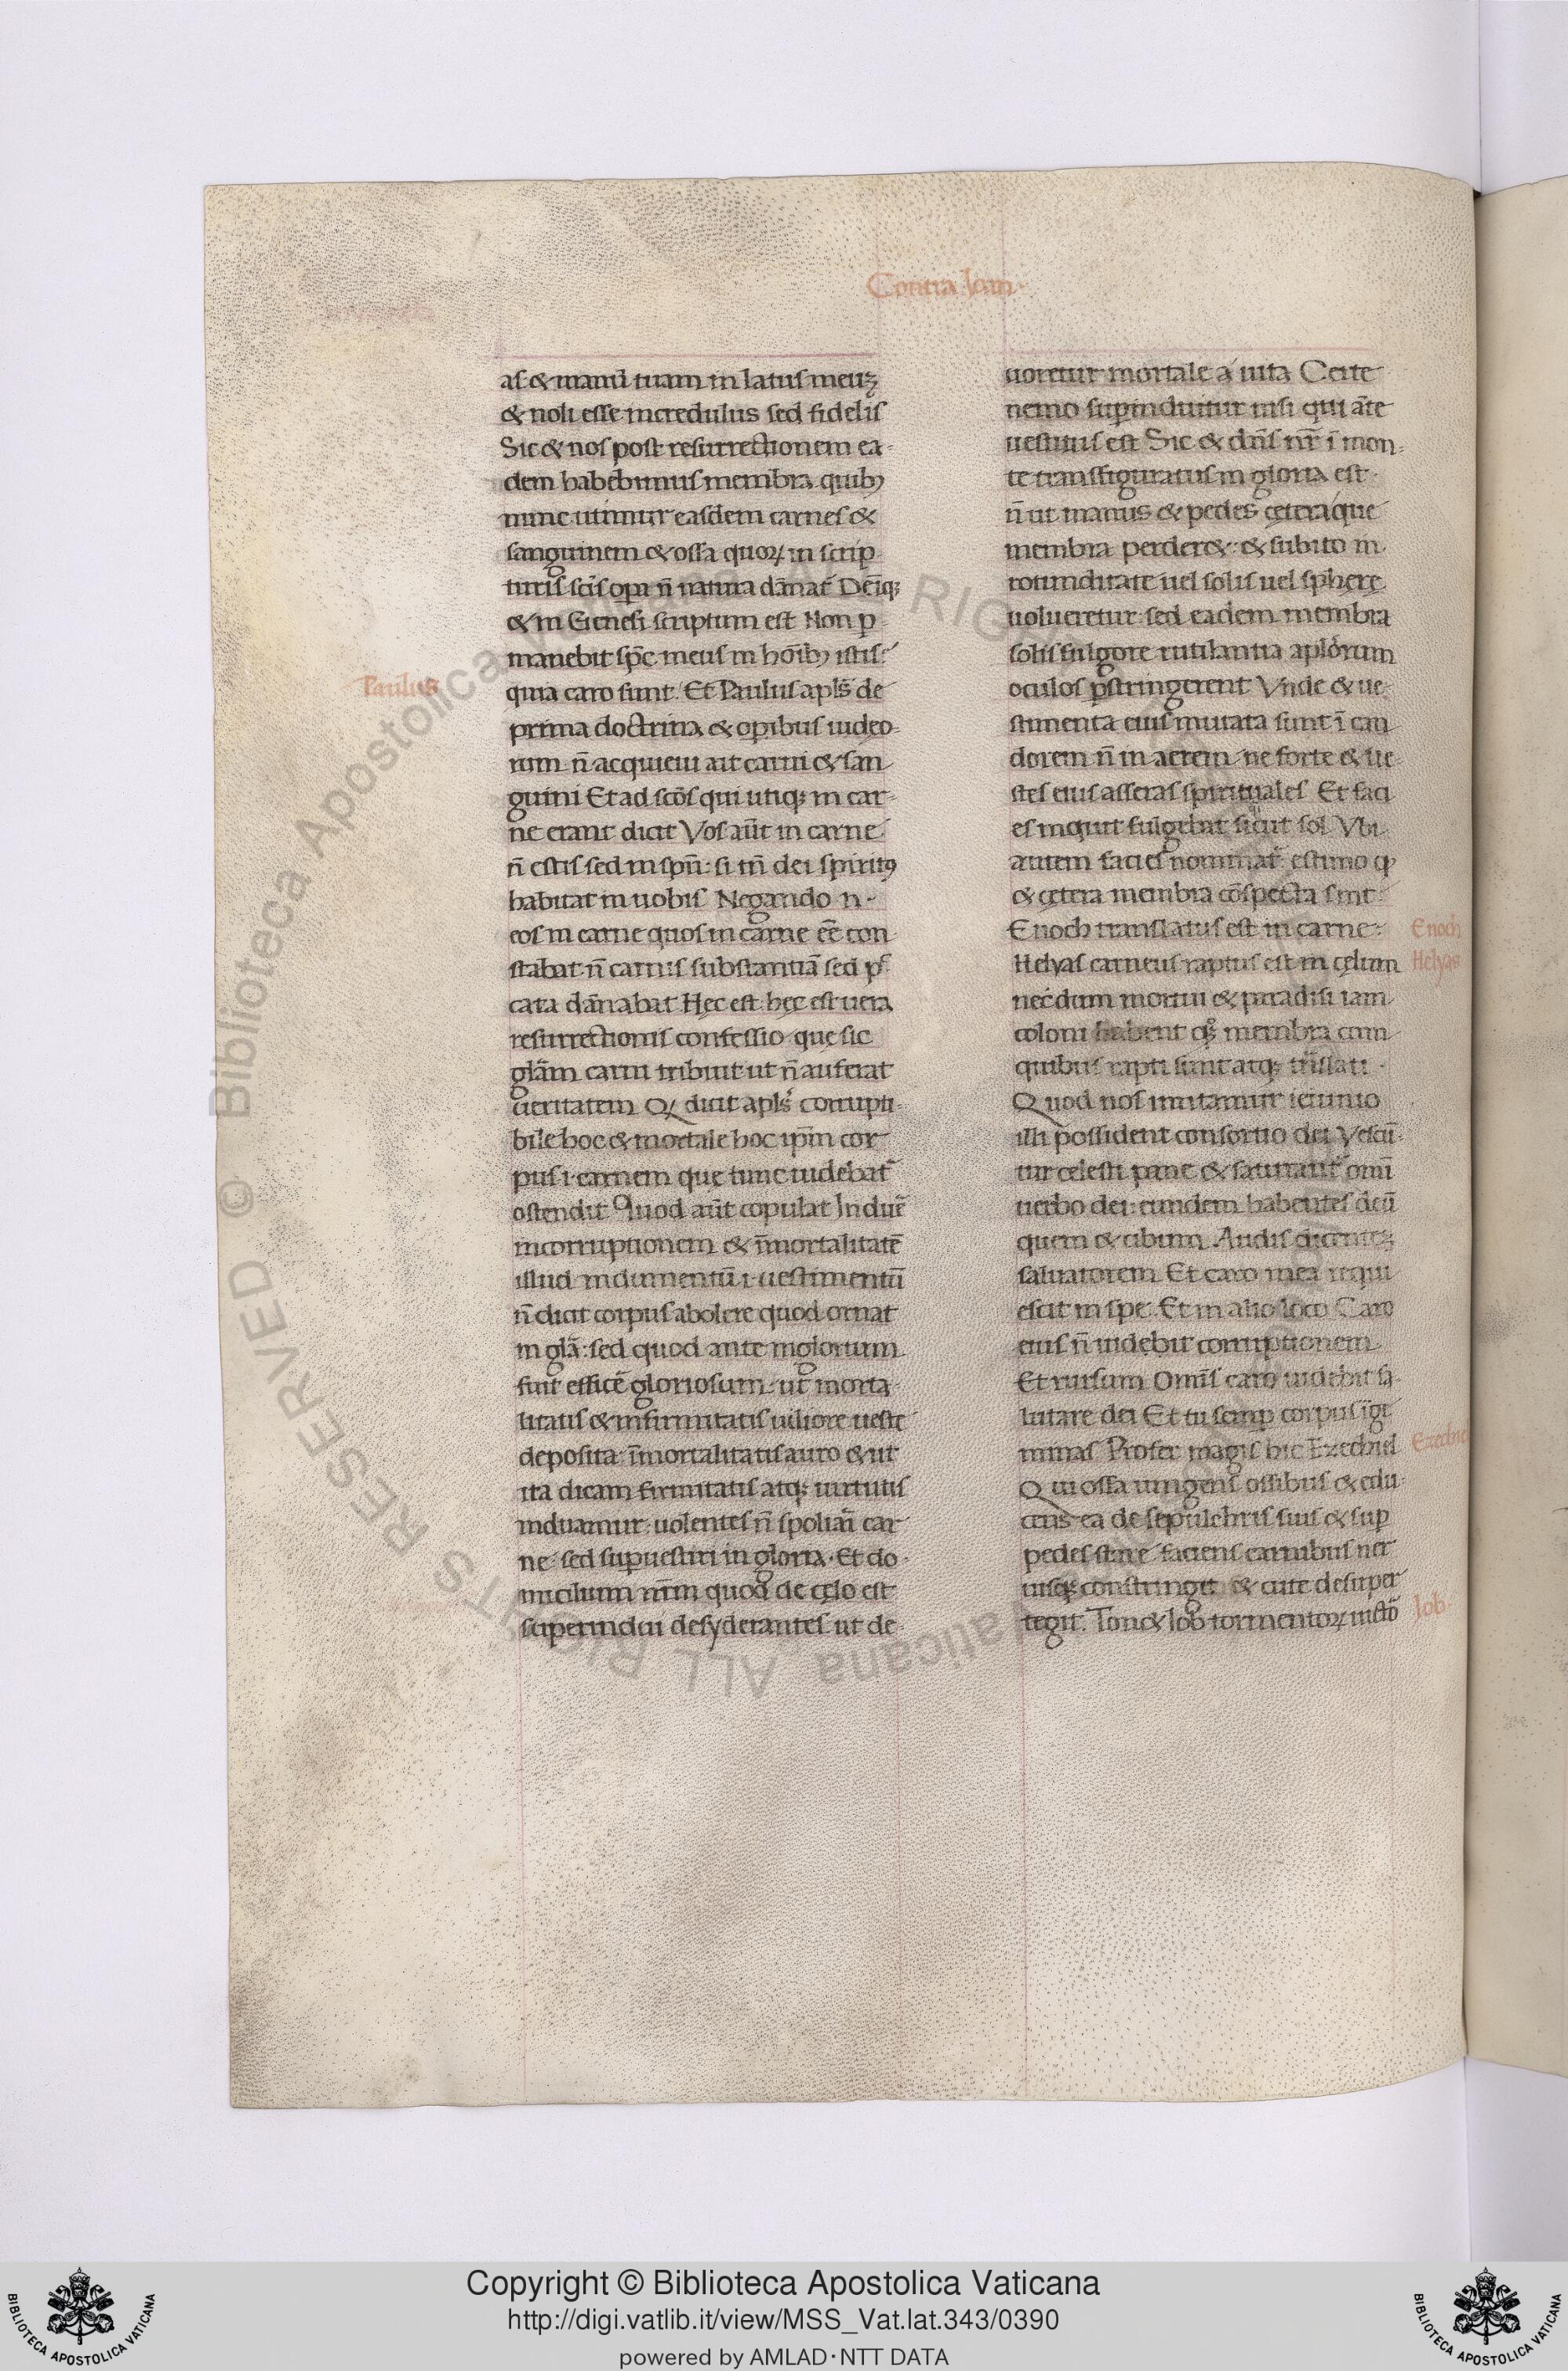 Contra Ioan·
as & manū tuam in latus meuʒ
& noli esse incredulus sed fidelis
Sic & nos post resurrectionem ea-
dem habebimus membra quibꝰ
nunc utimur easdem carnes &
sanguinem & ossa quoꝝ in scrip
turis scīs oꝑa n̄ natura dānat᷑ Deīqꝫ
& in Genesi scriptum est Non ꝑ
manebit spc̄ meus in hoībꝰ istis:
quia caro sunt. Et Paulus apls̄ de
Paulus
prima doctrina & oꝑibus iudeo-
rum n̄ acquieui ait carni & san
guini Et ad scōs qui utiqꝫ in car-
ne erant dicit Vos aūt in carne
n̄ estis sed in spū: si tn̄ dei spiritꝰ
habitat in uobis Negando n·
eos in carne quos in carne eē con
stabat n̄ carnis substantiā sed pc̄
cata dānabat Hęc est: hęc est uera
resurrectionis confessio quę sic
glām carni tribuit ut n̄ auferat
ueritatem Qꝫ dicit apls̄ corrupti-
bile hoc & mortale hoc ipm̄ cor
pus .i. carnem quę tunc uidebat᷑
ostendit Quod aūt copulat Induē
incorruptionem & īmortalitatē
illud indumentū .i. uestimentū
n̄ dicit corpus abolere quod ornat
in glā: sed quod ante inglorium
fuit efficē gloriosum: ut morta
litatis & infirmitatis uiliore ueste
deposita: īmortalitatis auro & ut
ita dicam firmitatis atqꝫ uirtutis
induamur: uolentes n̄ spoliari car
ne: sed suꝑuestiri in gloria· Et do-
micilium nr̄m quod de cęlo est
superindui desyderantes ut de-
uoretur mortale á uita Certe
nemo suꝑinduitur nisi qui āte
uestitus est Sic & dn̄s nr̄ ī mon-
te transfiguratus in gloria est·
n̄ ut manus & pedes cęteráque
membra perder&: & subito in
rotunditate uel solis uel spherę
uolueretur: sed eadem membra
solis fulgore rutilantia aplōrum
oculos ꝑstringerent Vnde & ue-
stimenta eius mutata sunt ī can
dorem n̄ in aerem: ne forte & ue-
stes eius asseras spirituales Et faci
es inquit fulgebat sicut sol Vbi
autem facies nominat᷑ estimo ꝙ
& cętera membra cōspecta sint:
Enoch translatus est in carne:
Enoch
Helyas carneus raptus est in cęlum
Helyas
necdum mortui & paradisi iam
coloni habent qꝫ membra cum
quibus rapti sunt atqꝫ trāslati·
Quod nos imitamur ieiunio
illi possident consortio dei Vescū-
tur celesti pane & saturant᷑ omī
uerbo dei: eundem habentes dn̄ū
quem & cibum Audis dicenteʒ
saluatorem Et caro mea requi
escit in spe. Et in alio loco Caro
eius n̄ uidebit corruptionem
Et rursum Omīs caro uidebit sa-
lutare dei Et tu semꝑ corpus īgē
minas Profer magis hic Ezechiel
Ezechiel
Qui ossa iungens ossibus & edu-
cens ea de sepulchris suis & suꝑ
pedes stare faciens carnibus ner
uisqꝫ constringit & cute desuper
tegit. Ton& Iob tormentoꝝ uictō
Iob·
Copyright © Biblioteca Apostolica Vaticana
http://digi.vatlib.it/view/MSS_Vat.lat.343/0390
powered by AMLAD·NTT DATA